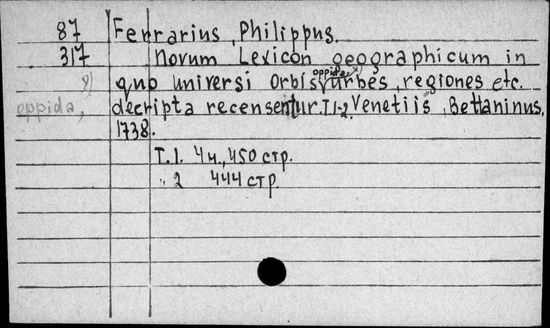 87 Ferrarius, Philippus.
317 Novum Lexicon geographicum in
8) quo universi orbis oppida, urbes, regiones etc.
oppida, decripta recensentur. T.1-2. Venetiis, Bettaninus,
1738.
T.1. 4н., 450 стр.
" 2 444 стр